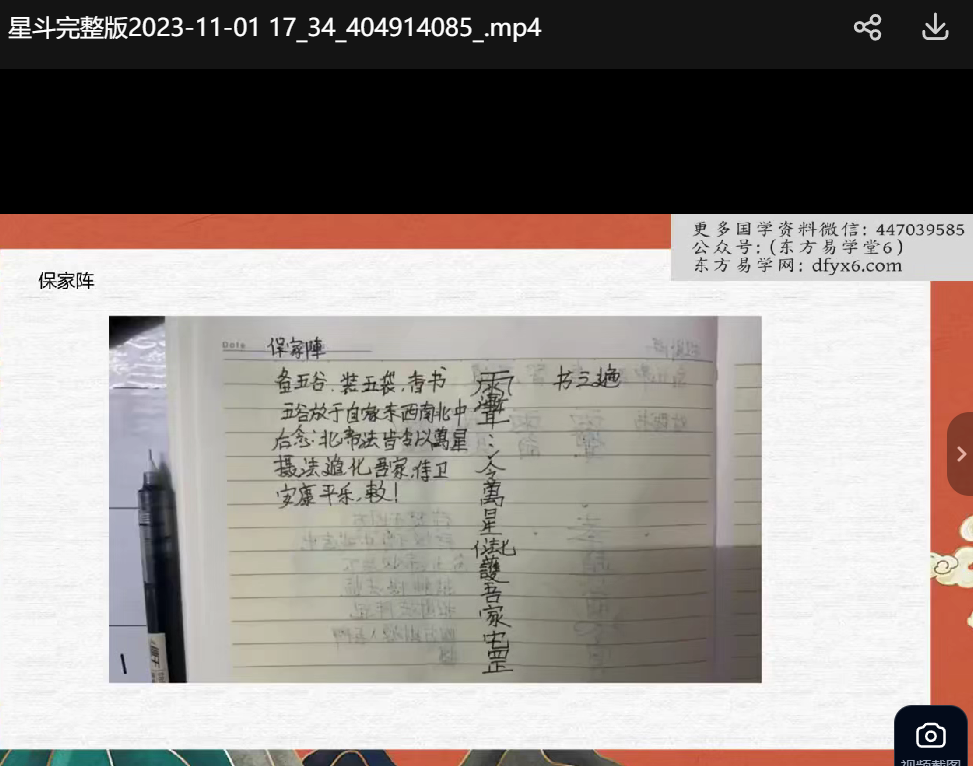 星斗完整版2023-11-01 17_34_404914085_.mp4
更多国学资料微信: 447039585
公众号:(东方易学堂6)
东方易学网: dfyx6.com
保家阵
Date
保家陣
备五谷.装五袋.书
五谷放于自家东西南北中
后念:北帝法皆以萬星
摄法造化吾家.侍卫
安康平乐.敕!
书三遍
:
令
萬
星
護
吾
家
罡
视频截图